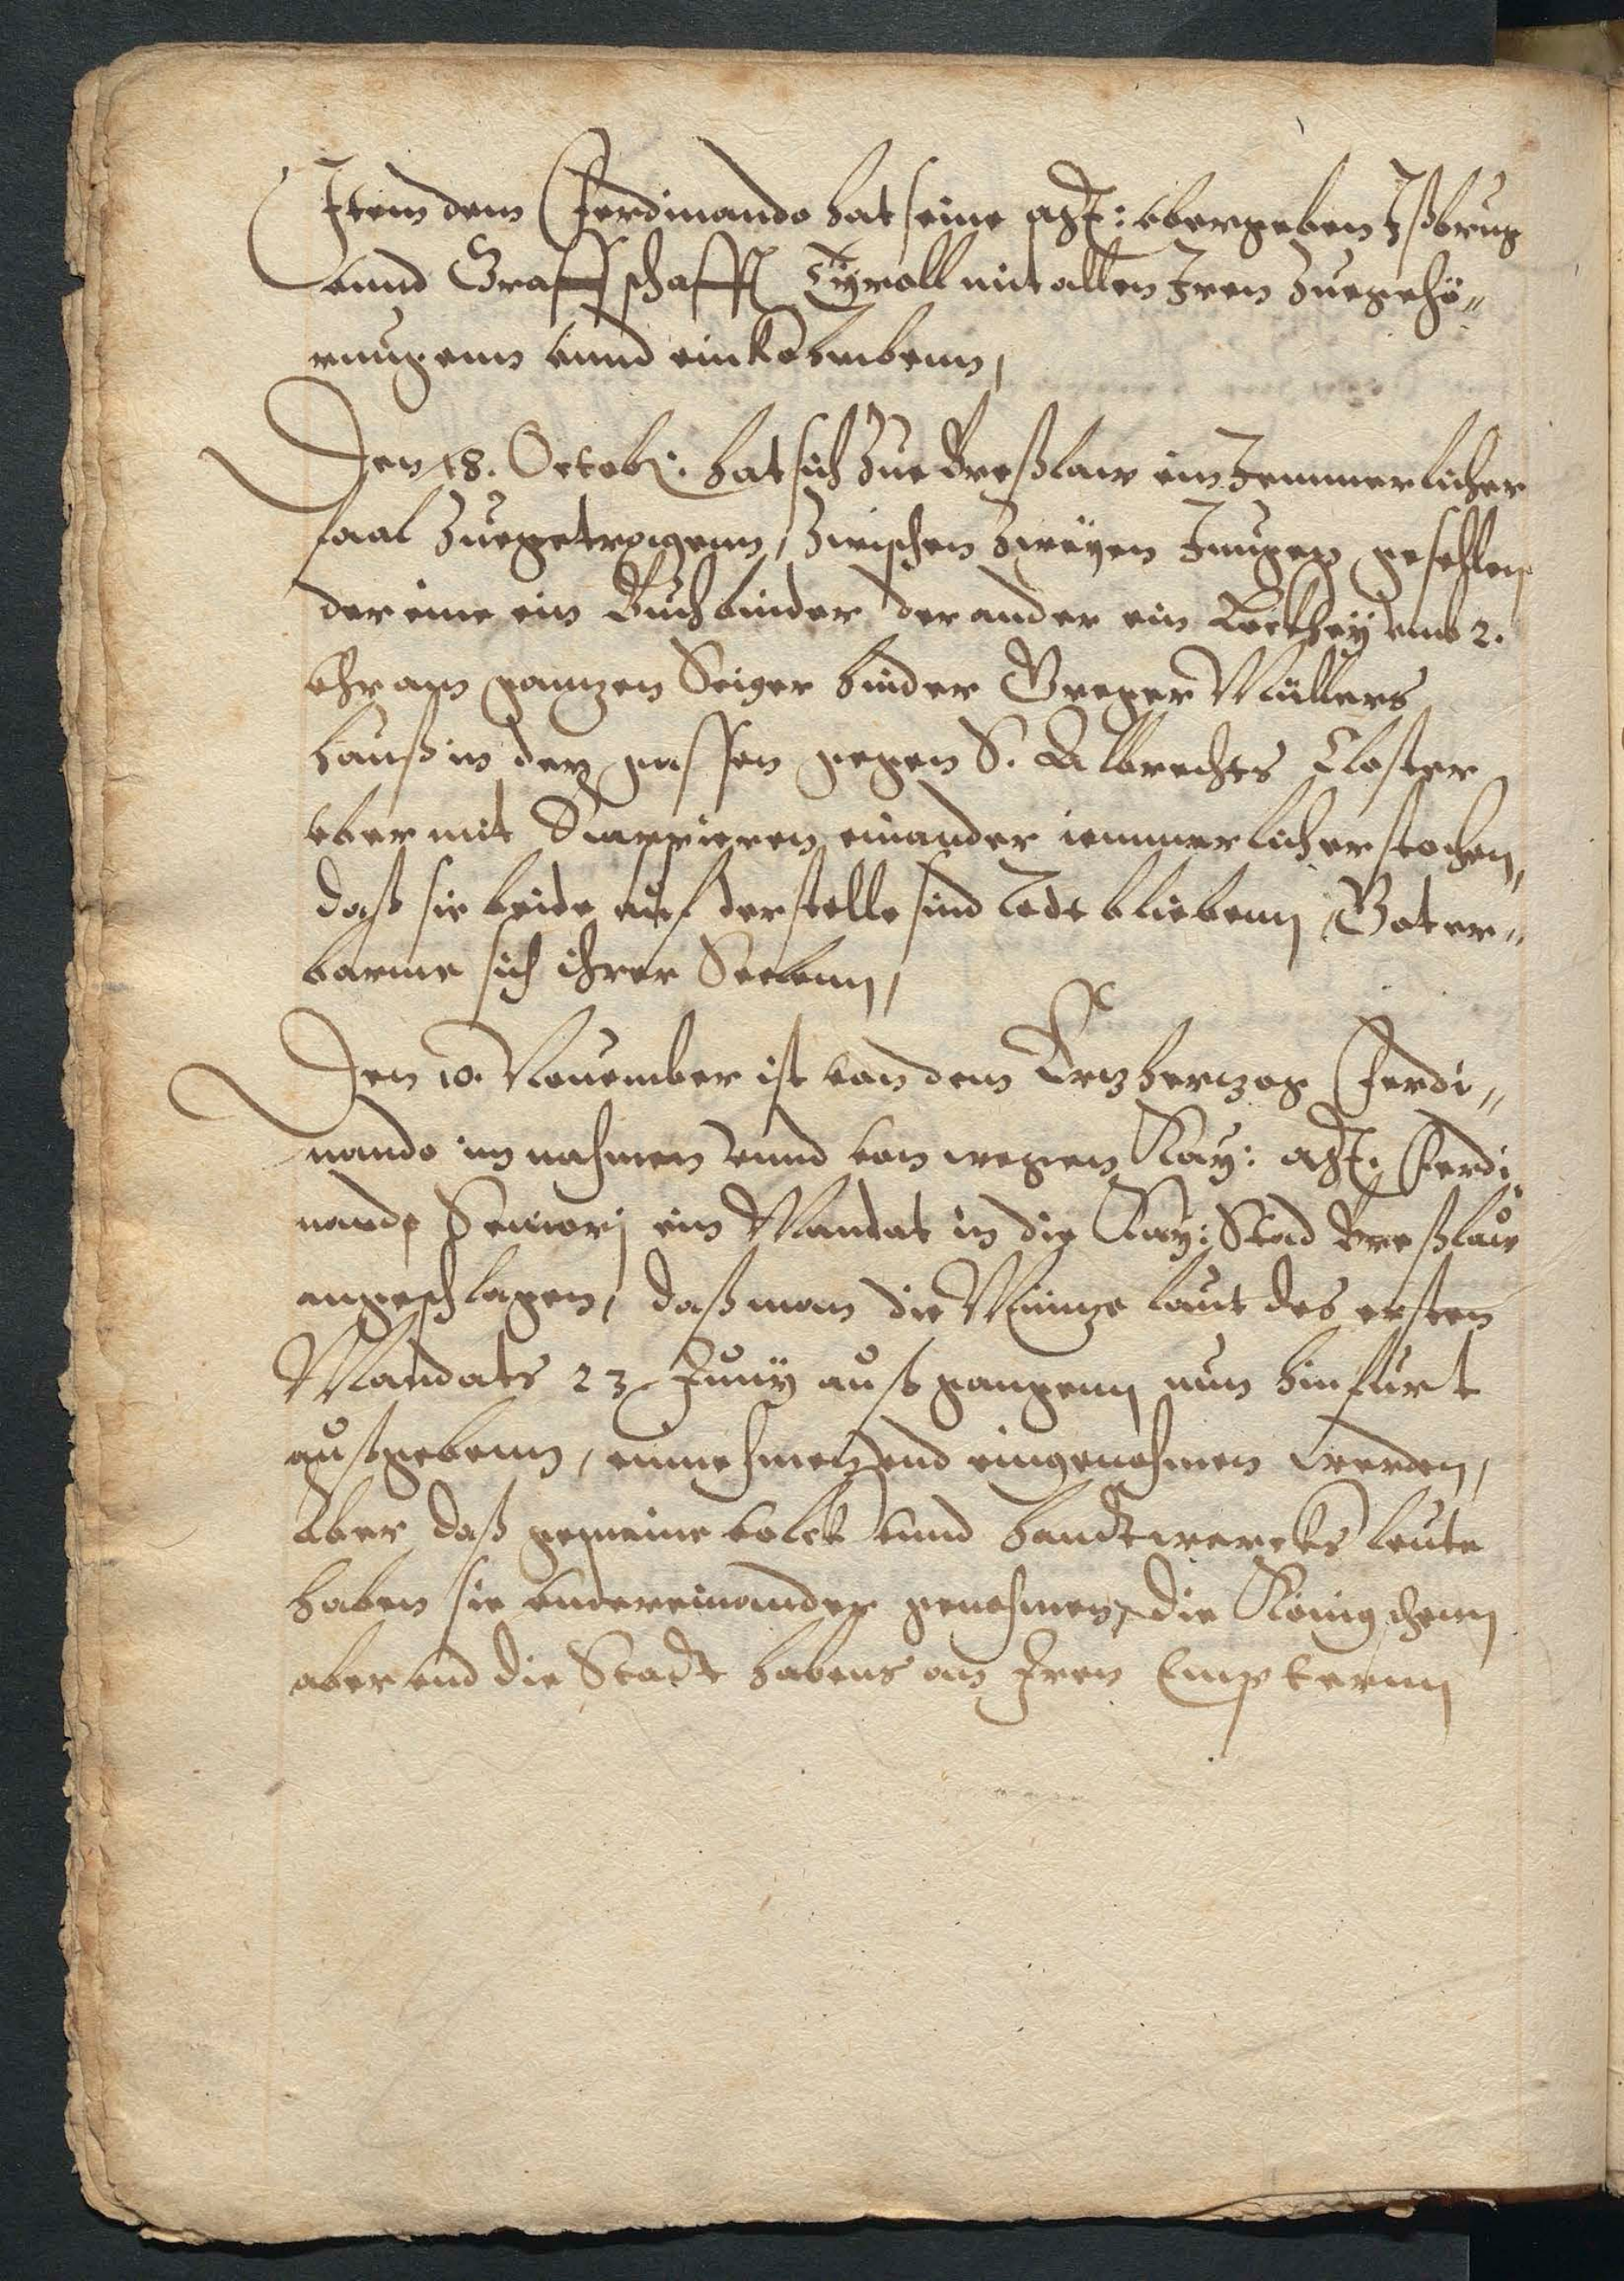 Item dem Ferdinando hat seine Mt: vbergeben Ißbrug
vnnd Graffschafft Tÿroll mit allen Iren Zuegehö„
rungenn vnnd einkohmbenn,
Den 18. Octob: hat sich Zue Breßlaw ein Jemmerlicher
faal Zuegetragenn, Zwischen Zweÿen Jungen gesehlen
der eine ein Buchbinder der ander ein vmb 2.
Vhr am gantzen Seiger hinder Greger Müllers
hauß in der gassen gegen S. Albrechts Closter
vber mit Rappieren einander iemmerlich erstochen,
daß sie beide auf der stelle sind Todt bliebenn Got er„
barme sich ihrer Seelenn,
Den 10. Nouember ist von dem Ertzhertzog Ferdi„
nando im nahmen vnnd von wegen Kay: Mt. Ferdi
nandi Seniorj ein Mandat in die Kay: Stad Breßlaw
angeschlagen, daß man die Müntze laut des ersten
Mandats 23 Junÿ außgangenn nun hinfurt
außgebenn, einnehmen vnd eingenohmen werden,
Aber daß gemeine volck vnnd handtwercks leute
haben sie vndereinander genohmen, die Königschenn
aber vnd die Stadt habens an Iren Empternn